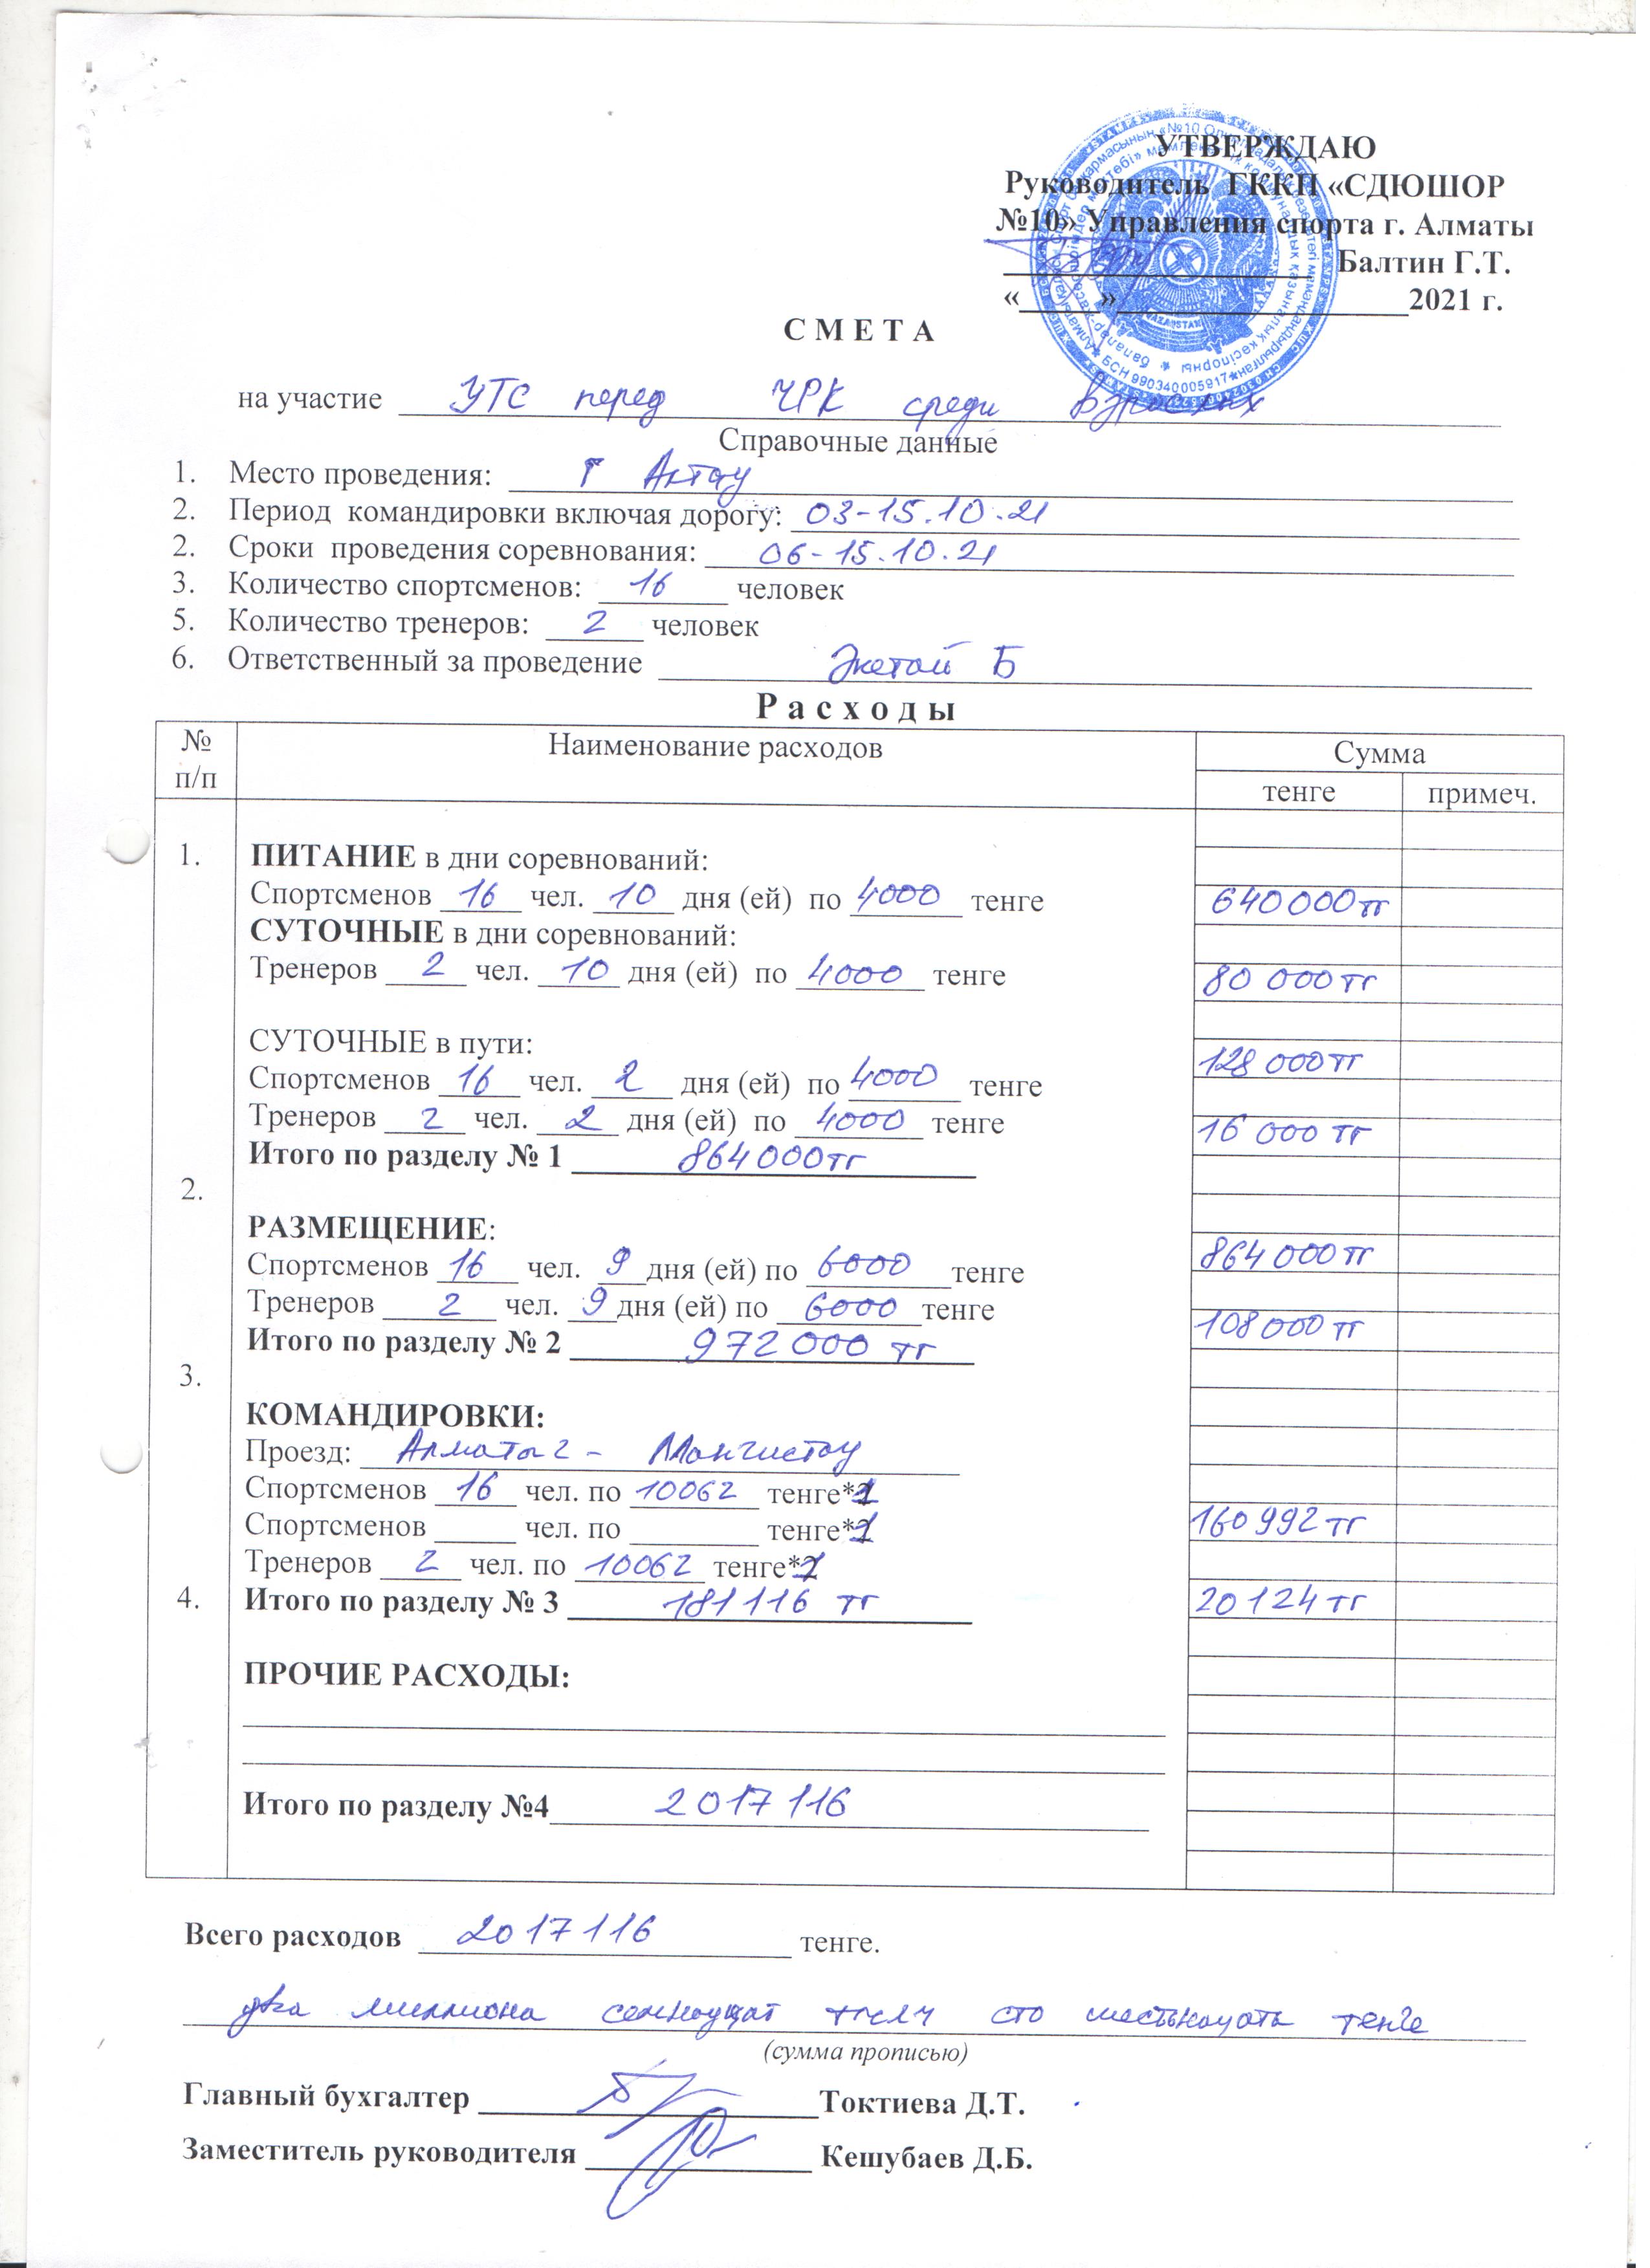 УТВЕРЖДАЮ
Руководитель ГККП «СДЮШОР
№10» Управления спорта г. Алматы
Балтин Г.Т.
«_____»__________________2021 г.
С М Е Т А
на участие УТС перед ЧРК среди взрослых
Справочные данные
1. Место проведения: г Актау
2. Период командировки включая дорогу: 03-15.10.21
2. Сроки проведения соревнования: 06-15.10.21
3. Количество спортсменов: 16 человек
5. Количество тренеров: 2 человек
6. Ответственный за проведение Жетай Б
Р а с х о д ы
№ п/п Наименование расходов Сумма
тенге примеч.
1. ПИТАНИЕ в дни соревнований:
Спортсменов 16 чел. 10 дня (ей) по 4000 тенге 640 000 тг
СУТОЧНЫЕ в дни соревнований:
Тренеров 2 чел. 10 дня (ей) по 4000 тенге 80 000 тг
СУТОЧНЫЕ в пути:
Спортсменов 16 чел. 2 дня (ей) по 4000 тенге 128 000 тг
Тренеров 2 чел. 2 дня (ей) по 4000 тенге 16 000 тг
Итого по разделу № 1 864 000 тг
2.
РАЗМЕЩЕНИЕ:
Спортсменов 16 чел. 9 дня (ей) по 6000 тенге 864 000 тг
Тренеров 2 чел. 9 дня (ей) по 6000 тенге 108 000 тг
Итого по разделу № 2 972 000 тг
3.
КОМАНДИРОВКИ:
Проезд: Алматы 2 - Мангистау
Спортсменов 16 чел. по 10062 тенге*1 160 992 тг
Спортсменов _____ чел. по ________ тенге*1
Тренеров 2 чел. по 10062 тенге*1 20 124 тг
4. Итого по разделу № 3 181 116 тг
ПРОЧИЕ РАСХОДЫ:
Итого по разделу №4 2 017 116
Всего расходов 2 017 116 тенге.
два миллиона семнадцат тысяч сто шестьнадцать тенге
(сумма прописью)
Главный бухгалтер Токтиева Д.Т.
Заместитель руководителя Кешубаев Д.Б.